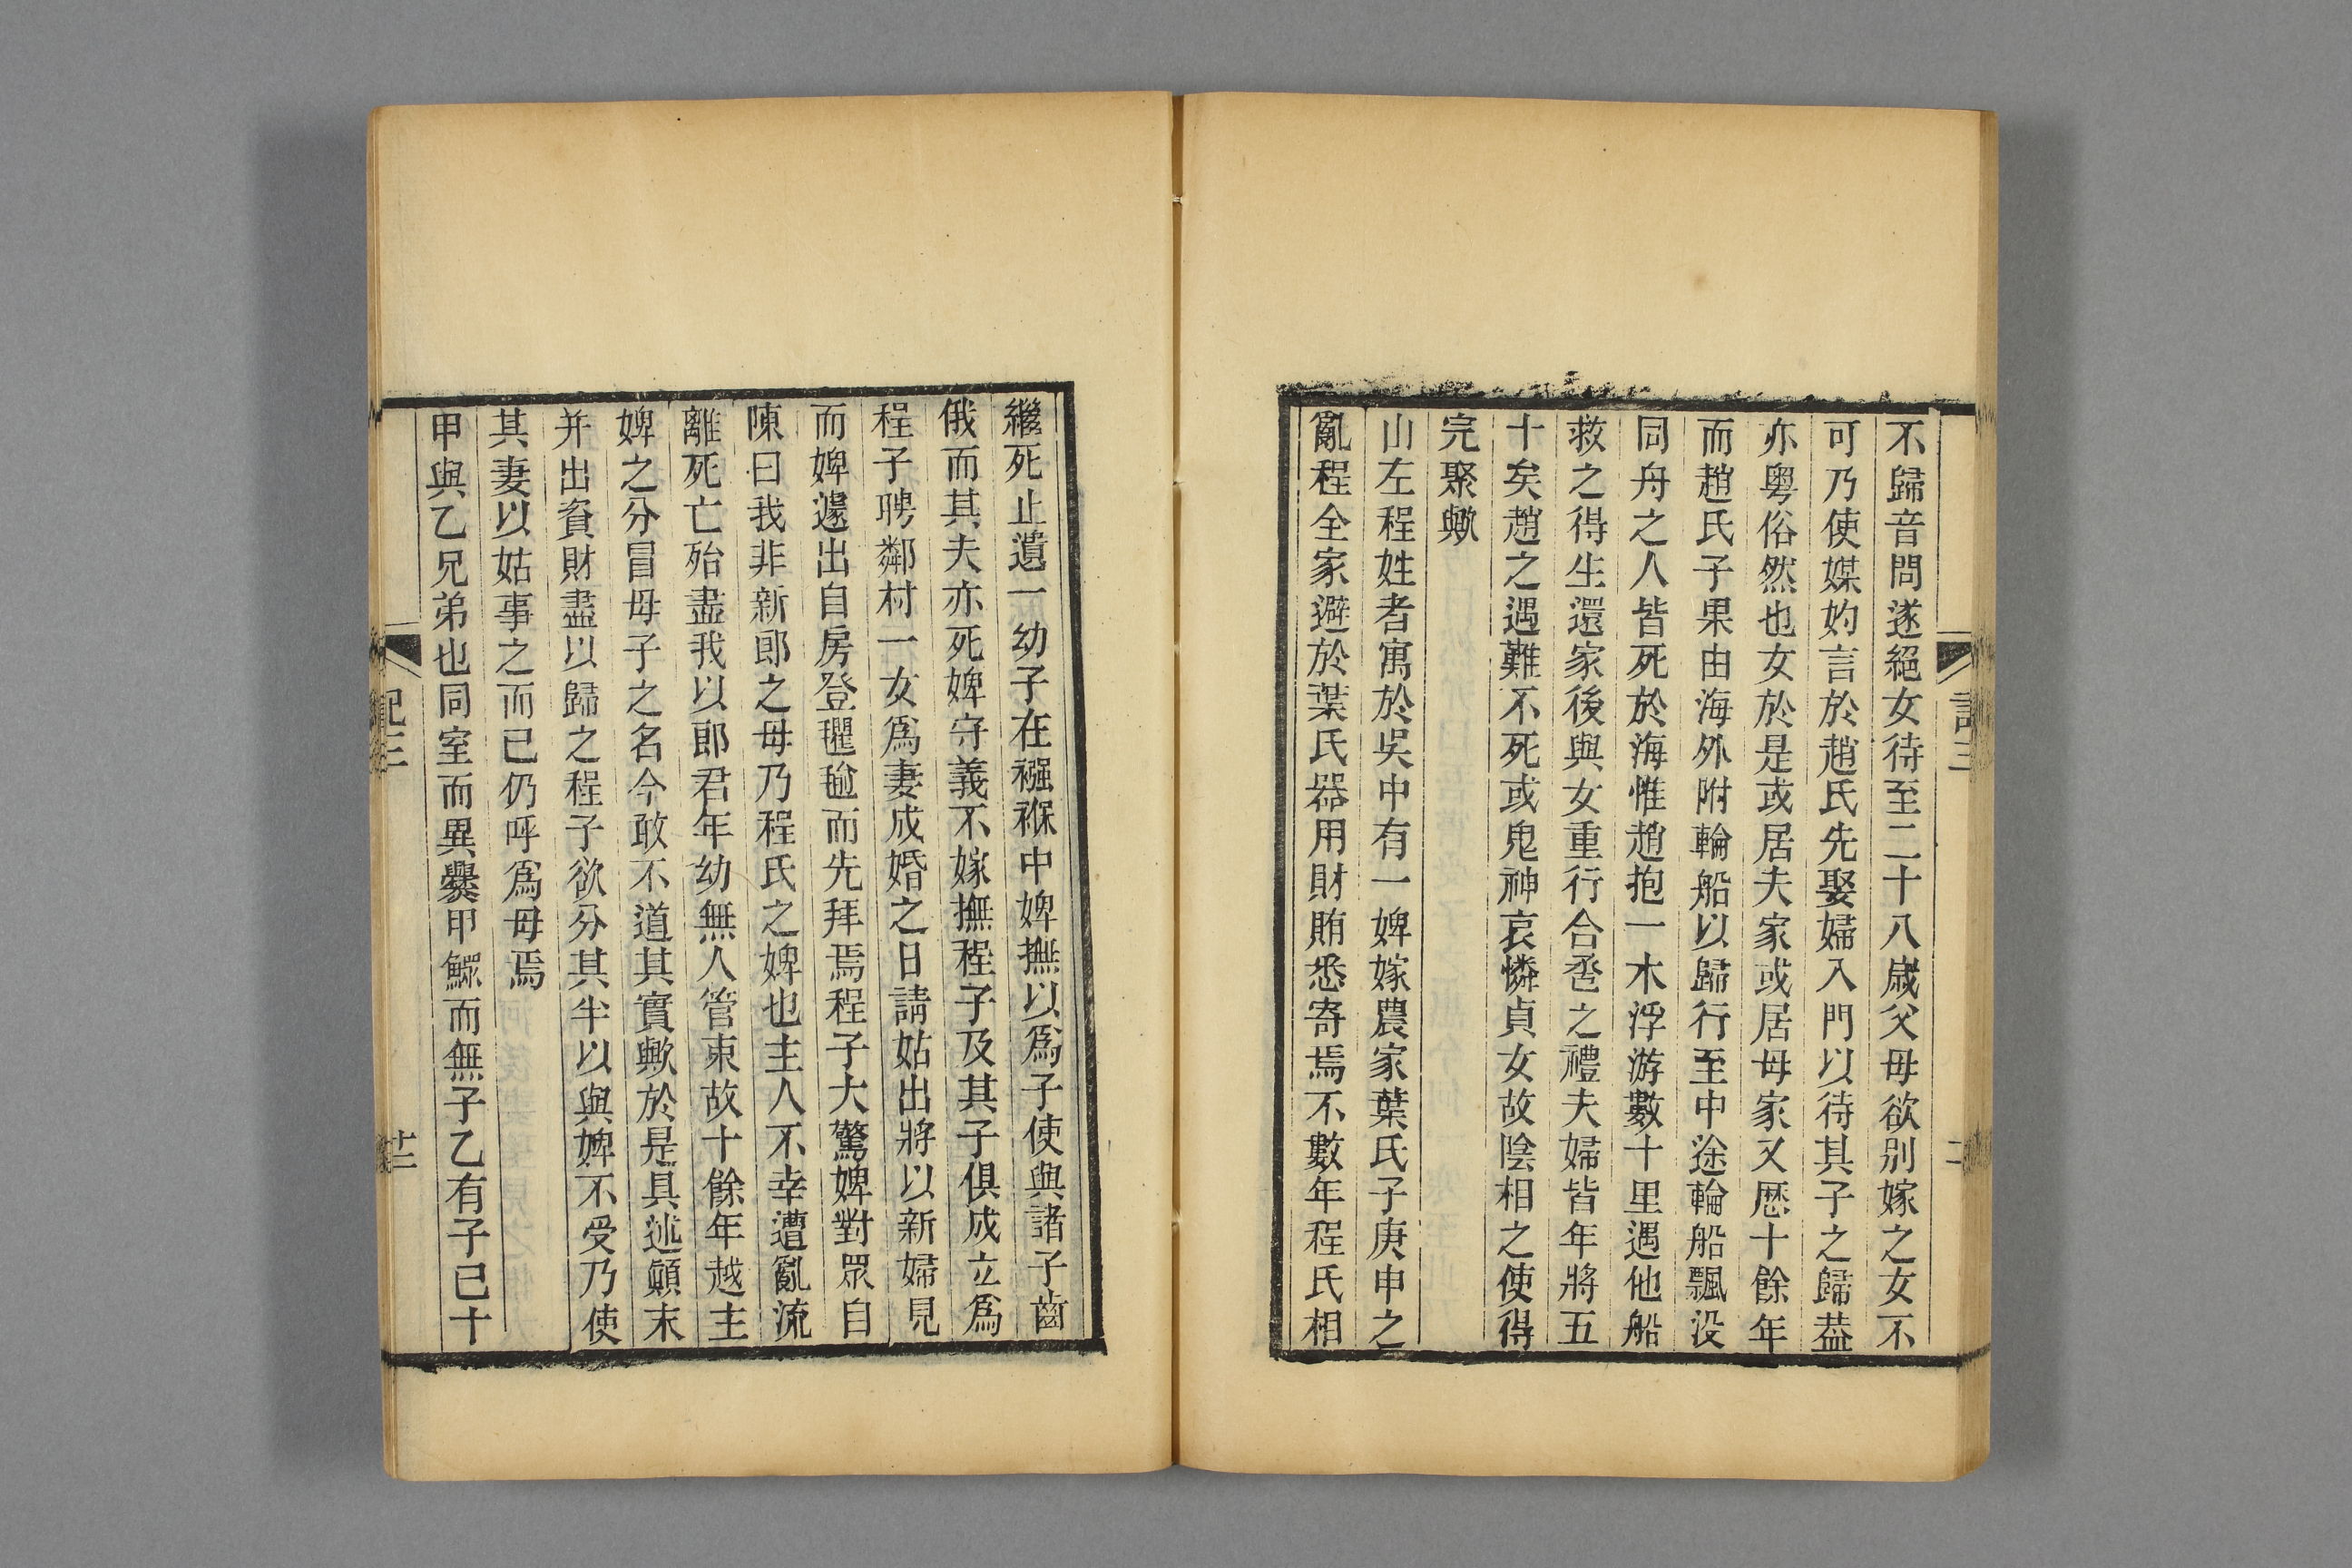 不歸音問遂絕女待至二十八歲父母欲別嫁之女不
可乃使媒妁言於趙氏先娶婦入門以待其子之歸葢
亦粵俗然也女於是或居夫家或居母家又厯十餘年
而趙氏子果由海外附輪船以歸行至中途輪船飄没
同舟之人皆死於海惟趙抱一木浮游數十里遇他船
救之得生還家後與女重行合卺之禮夫婦皆年將五
十矣趙之遇難不死或鬼神哀憐貞女故陰相之使得
完聚歟
山左程姓者寓於吳中有一婢嫁農家葉氏子庚申之
亂程全家避於葉氏器用財賄悉寄焉不數年程氏相
繼死止遺一幼子在襁褓中婢撫以爲子使與諸子齒
俄而其夫亦死婢守義不嫁撫程子及其子俱成立爲
程子聘鄰村一女爲妻成婚之日請姑出將以新婦見
而婢遽出自房登氍毹而先拜焉程子大驚婢對眾自
陳曰我非新郎之母乃程氏之婢也主人不幸遭亂流
離死亡殆盡我以郎君年幼無人管束故十餘年越主
婢之分冒母子之名今敢不道其實歟於是具述顛末
并出貲財盡以歸之程子欲分其半以與婢不受乃使
其妻以姑事之而已仍呼爲母焉
甲與乙兄弟也同室而異爨甲鰥而無子乙有子已十
記三